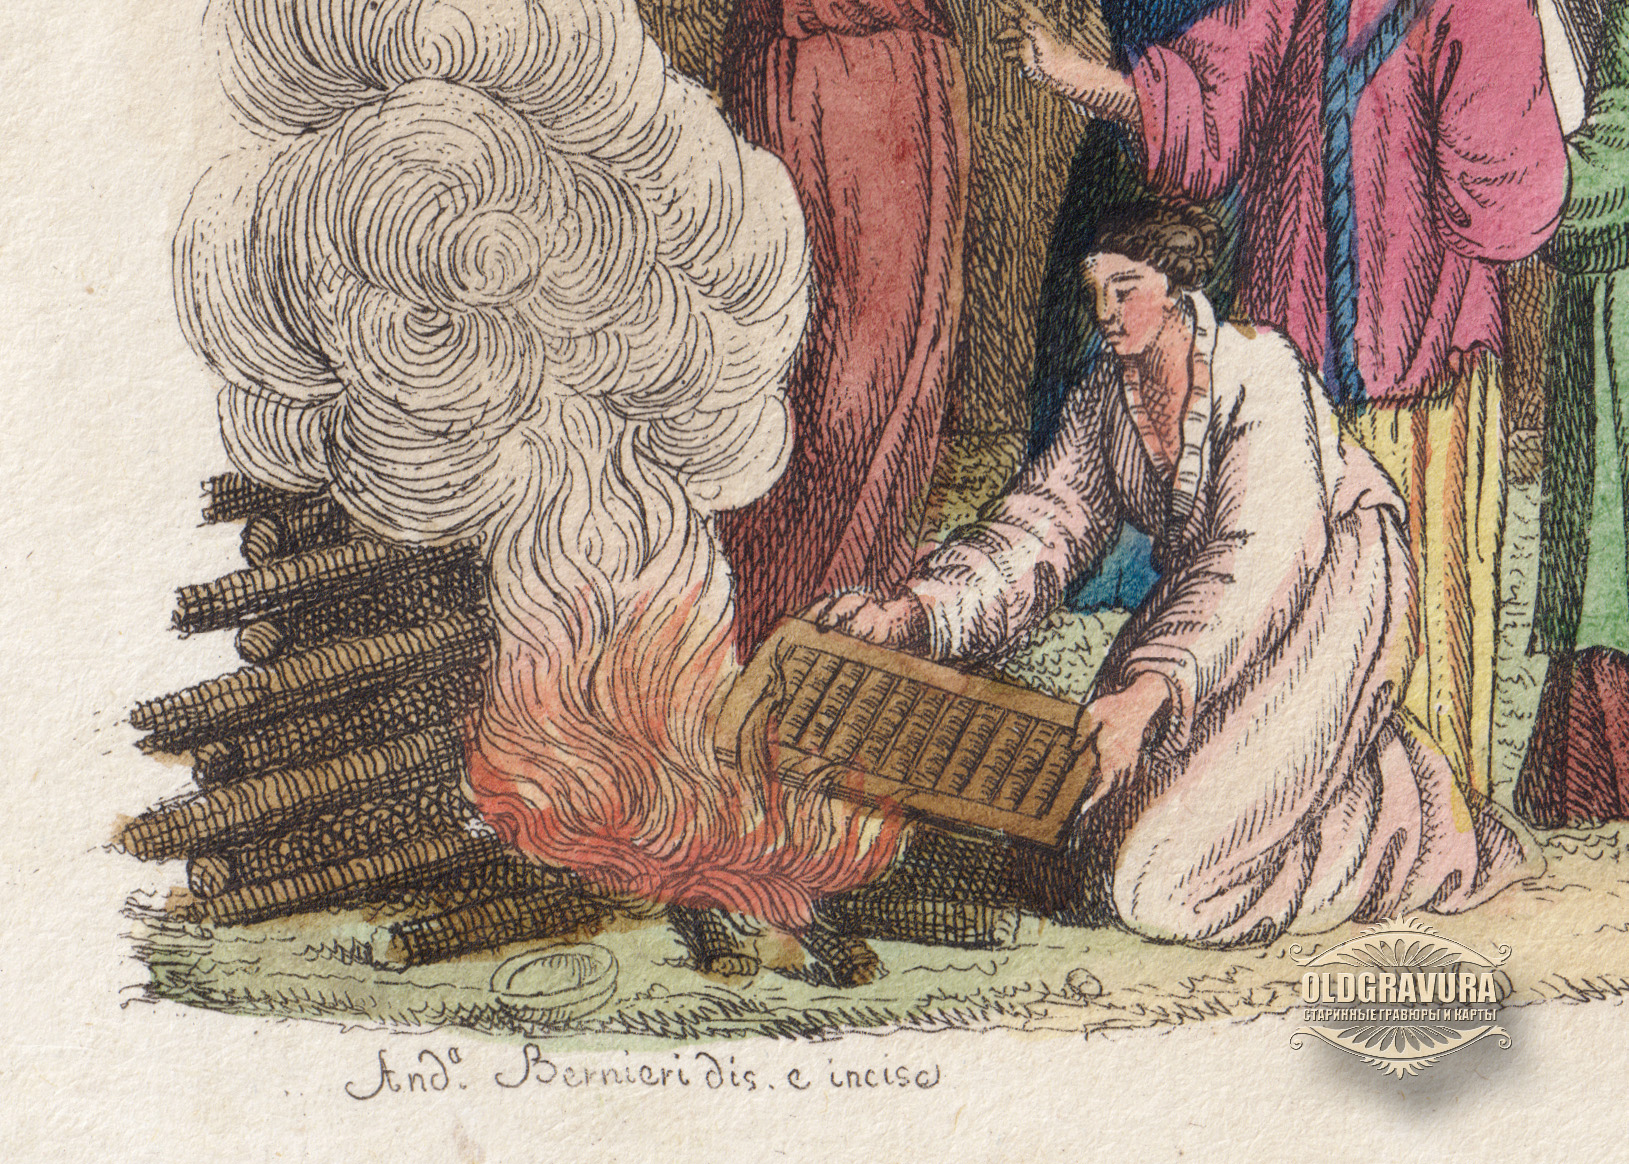 And.ª Bernieri dis. e incise
OLDGRAVURA
СТАРИННЫЕ ГРАВЮРЫ И КАРТЫ